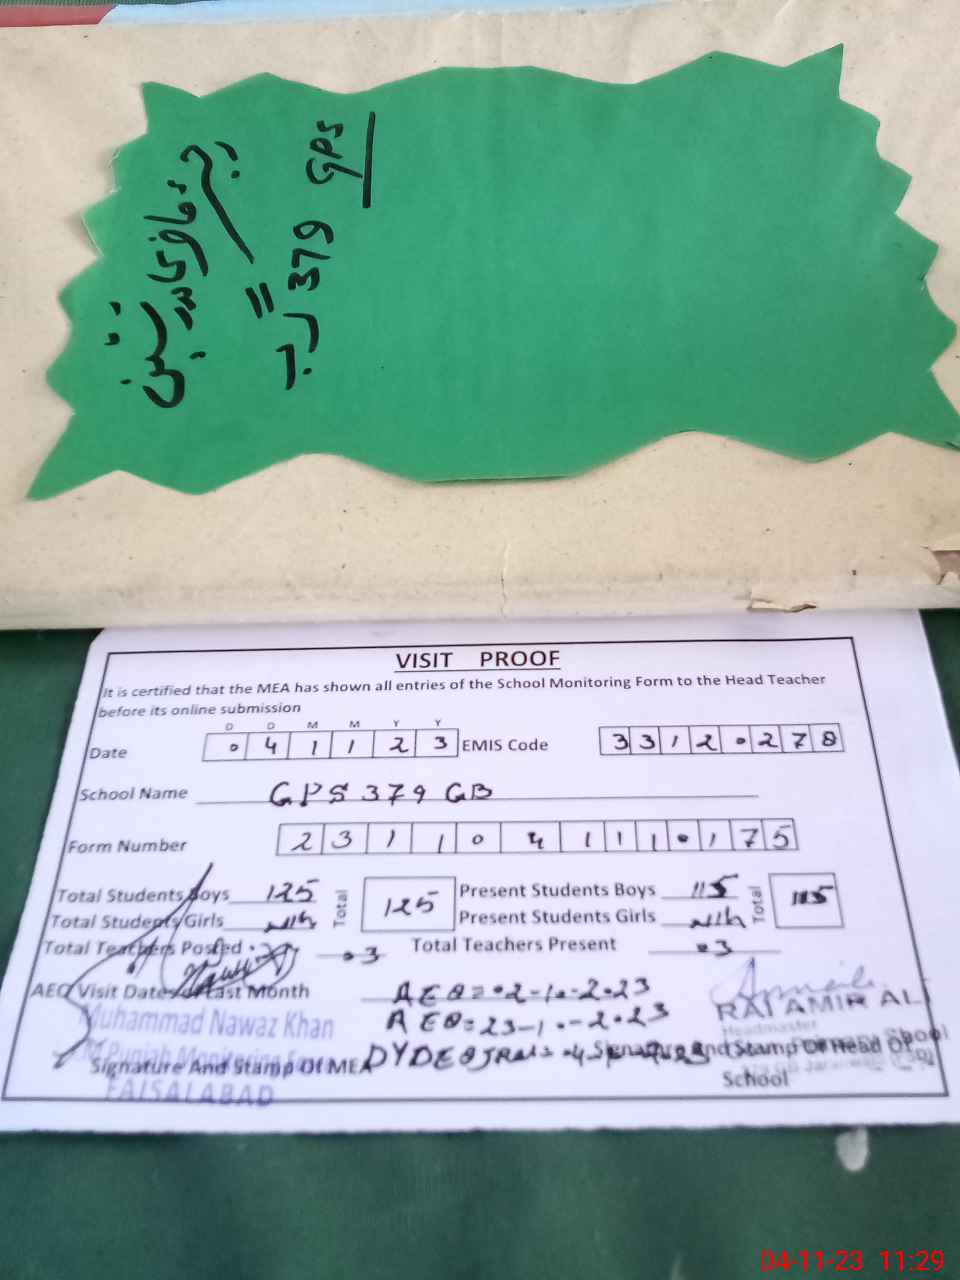 رجسٹر
GPS 379 گ ب
VISIT PROOF
It is certified that the MEA has shown all entries of the School Monitoring Form to the Head Teacher
before its online submission
D D M M Y Y
Date 0 4 1 1 2 3 EMIS Code 3 3 1 2 0 2 7 8
School Name GPS 379 GB
Form Number 2 3 1 1 0 4 1 1 1 0 1 7 5
Total Students Boys 125 Total 125 Present Students Boys 115 Total 115
Total Students Girls Nil Present Students Girls Nil
Total Teachers Posted 03 Total Teachers Present 03
AEO Visit Dates of Last Month AEO = 02-10-2023
AEO = 23-10-2023
RAI AMIR ALI
Headmaster
Muhammad Nawaz Khan
DYDEO
Signature And Stamp Of MEA
Signature And Stamp Of Head Of
School
FAISALABAD
04-11-23 11:29